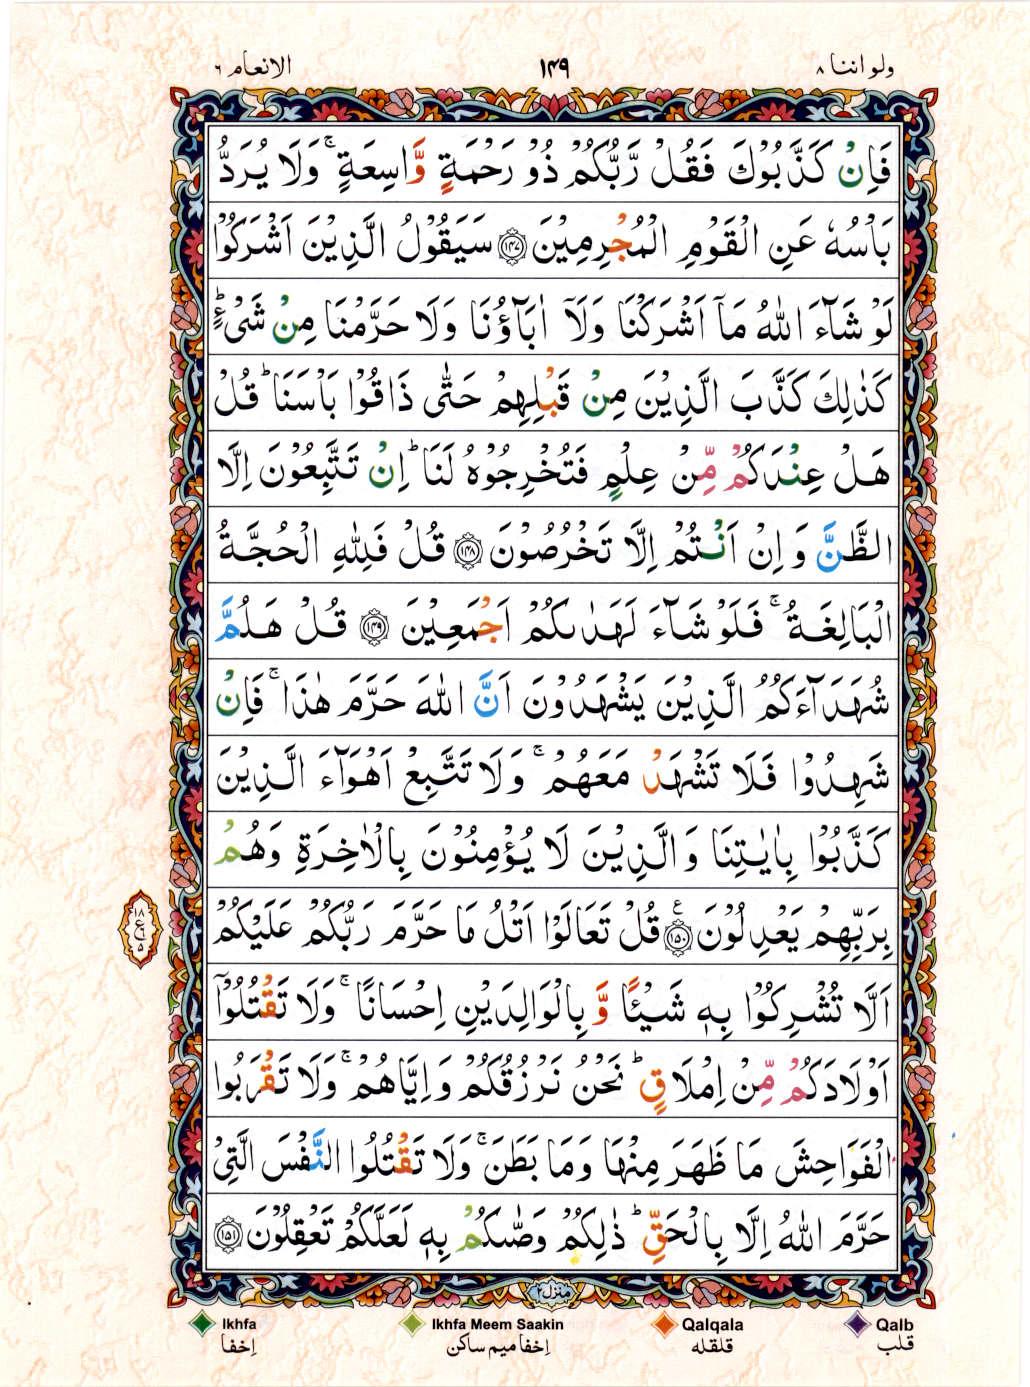 ولو اننا ٨
١٤٩
الانعام ٦
فَاِنْ كَذَّبُوْكَ فَقُلْ رَّبُّكُمْ ذُوْ رَحْمَةٍ وَّاسِعَةٍ ۚ وَلَا يُرَدُّ
بَاْسُهٗ عَنِ الْقَوْمِ الْمُجْرِمِيْنَ ﴿١٤٧﴾ سَيَقُوْلُ الَّذِيْنَ اَشْرَكُوْا
لَوْ شَآءَ اللّٰهُ مَآ اَشْرَكْنَا وَلَآ اٰبَآؤُنَا وَلَا حَرَّمْنَا مِنْ شَىْءٍ ؕ
كَذٰلِكَ كَذَّبَ الَّذِيْنَ مِنْ قَبْلِهِمْ حَتّٰى ذَاقُوْا بَاْسَنَا ؕ قُلْ
هَلْ عِنْدَكُمْ مِّنْ عِلْمٍ فَتُخْرِجُوْهُ لَنَا ؕ اِنْ تَتَّبِعُوْنَ اِلَّا
الظَّنَّ وَاِنْ اَنْتُمْ اِلَّا تَخْرُصُوْنَ ﴿١٤٨﴾ قُلْ فَلِلّٰهِ الْحُجَّةُ
الْبَالِغَةُ ۚ فَلَوْ شَآءَ لَهَدٰىكُمْ اَجْمَعِيْنَ ﴿١٤٩﴾ قُلْ هَلُمَّ
شُهَدَآءَكُمُ الَّذِيْنَ يَشْهَدُوْنَ اَنَّ اللّٰهَ حَرَّمَ هٰذَا ۚ فَاِنْ
شَهِدُوْا فَلَا تَشْهَدْ مَعَهُمْ ۚ وَلَا تَتَّبِعْ اَهْوَآءَ الَّذِيْنَ
كَذَّبُوْا بِاٰيٰتِنَا وَالَّذِيْنَ لَا يُؤْمِنُوْنَ بِالْاٰخِرَةِ وَهُمْ
بِرَبِّهِمْ يَعْدِلُوْنَ ﴿١٥٠﴾ ع قُلْ تَعَالَوْا اَتْلُ مَا حَرَّمَ رَبُّكُمْ عَلَيْكُمْ
١٨
ع
٥
اَلَّا تُشْرِكُوْا بِهٖ شَيْـًٔا وَّبِالْوَالِدَيْنِ اِحْسَانًا ۚ وَلَا تَقْتُلُوْٓا
اَوْلَادَكُمْ مِّنْ اِمْلَاقٍ ؕ نَحْنُ نَرْزُقُكُمْ وَاِيَّاهُمْ ۚ وَلَا تَقْرَبُوا
الْفَوَاحِشَ مَا ظَهَرَ مِنْهَا وَمَا بَطَنَ ۚ وَلَا تَقْتُلُوا النَّفْسَ الَّتِىْ
حَرَّمَ اللّٰهُ اِلَّا بِالْحَقِّ ؕ ذٰلِكُمْ وَصّٰىكُمْ بِهٖ لَعَلَّكُمْ تَعْقِلُوْنَ ﴿١٥١﴾
منزل ٢
Ikhfa Ikhfa Meem Saakin Qalqala Qalb
اِخفا اِخفا میم ساکن قلقله قلب